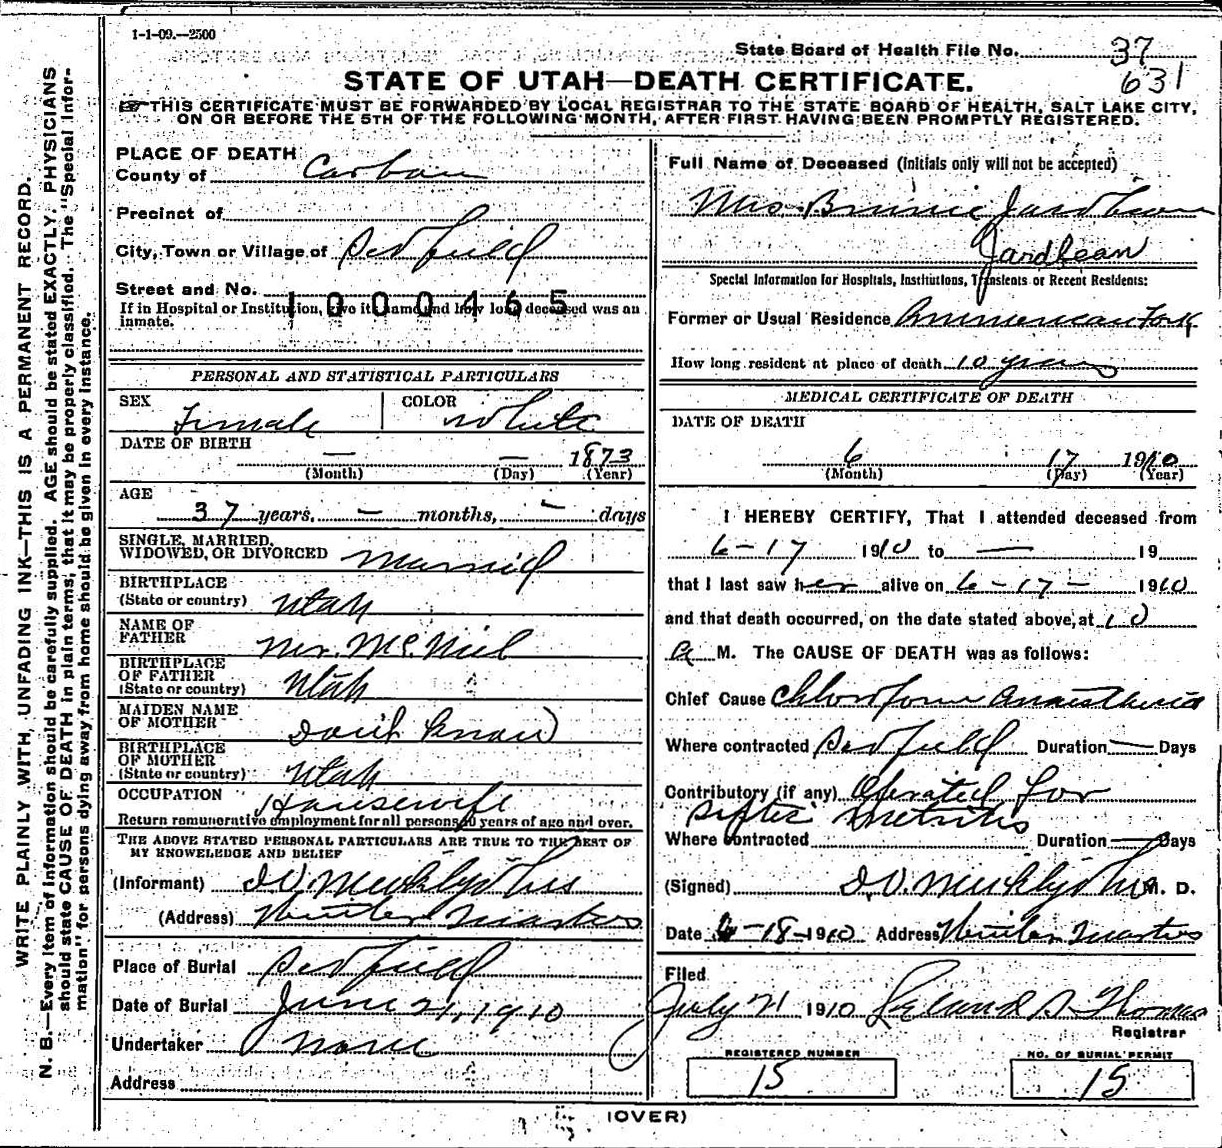 1-1-09.—2500
State Board of Health File No. 37
631
STATE OF UTAH—DEATH CERTIFICATE.
THIS CERTIFICATE MUST BE FORWARDED BY LOCAL REGISTRAR TO THE STATE BOARD OF HEALTH, SALT LAKE CITY,
ON OR BEFORE THE 5TH OF THE FOLLOWING MONTH, AFTER FIRST HAVING BEEN PROMPTLY REGISTERED.
WRITE PLAINLY WITH UNFADING INK—THIS IS A PERMANENT RECORD.
N. B.—Every item of information should be carefully supplied. AGE should be stated EXACTLY. PHYSICIANS
should state CAUSE OF DEATH in plain terms, that it may be properly classified. The "Special Infor-
mation" for persons dying away from home should be given in every instance.
PLACE OF DEATH
County of Carbon
Precinct of
City, Town or Village of Scofield
Street and No.
1000465
If in Hospital or Institution, give its name and how long deceased was an
inmate.
PERSONAL AND STATISTICAL PARTICULARS
SEX Female COLOR White
DATE OF BIRTH — — 1873
(Month) (Day) (Year)
AGE
37 years, — months, - days
SINGLE, MARRIED,
WIDOWED, OR DIVORCED Married
BIRTHPLACE
(State or country) Utah
NAME OF
FATHER McNiel
BIRTHPLACE
OF FATHER
(State or country) Utah
MAIDEN NAME
OF MOTHER Don't Know
BIRTHPLACE
OF MOTHER
(State or country) Utah
OCCUPATION Housewife
Return remunerative employment for all persons 10 years of age and over.
THE ABOVE STATED PERSONAL PARTICULARS ARE TRUE TO THE BEST OF
MY KNOWLEDGE AND BELIEF
(Informant)
(Address) Winter Quarters
Place of Burial Scofield
Date of Burial June 21, 1910
Undertaker None
Address
Full Name of Deceased (Initials only will not be accepted)
Mrs. Jardbean
Jardbean
Special Information for Hospitals, Institutions, Transients or Recent Residents:
Former or Usual Residence Ammerican Fork
How long resident at place of death 10 years
MEDICAL CERTIFICATE OF DEATH
DATE OF DEATH
6 17 1910
(Month) (Day) (Year)
I HEREBY CERTIFY, That I attended deceased from
6-17 1910 to — 19
that I last saw her alive on 6-17- 1910
and that death occurred, on the date stated above, at 10
a M. The CAUSE OF DEATH was as follows:
Chief Cause Chloroform Anaesthesia
Where contracted Scofield Duration — Days
Contributory (if any) Operated for
Septic Metritis
Where contracted Duration — Days
(Signed) M. D.
Date 6-18-1910 Address Winter Quarters
Filed
July 21 1910 Leland S. Thomas
Registrar
REGISTERED NUMBER
15
NO. OF BURIAL PERMIT
15
(OVER)